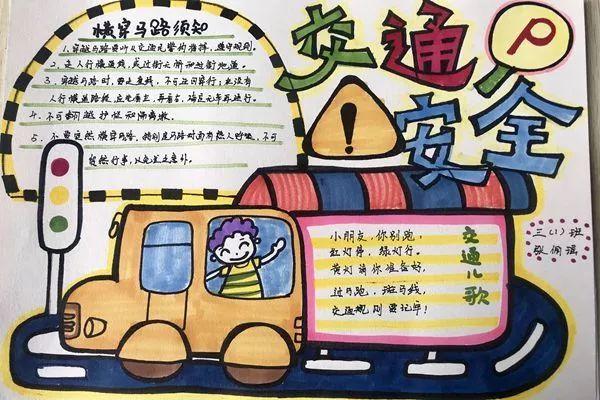 横穿马路须知
1、穿越马路要听从交通民警的指挥，遵守规则。
2、走人行横道线，或过街天桥和过街地道。
3、穿越马路时，要走直线，不可迂回穿行；在没有
人行横道路段，应先看左，再看右，确定无车再通行。
4、不可翻越护栏和隔离墩。
5、不要突然横穿马路，特别是马路对面有熟人呼唤，不可
贸然行事，以免发生意外。
交通
安全
P
!
三（1）班
张佩瑶
小朋友，你别跑，
红灯停，绿灯行。
黄灯请你准备好，
过马路，斑马线，
交通规则要记牢！
交通儿歌